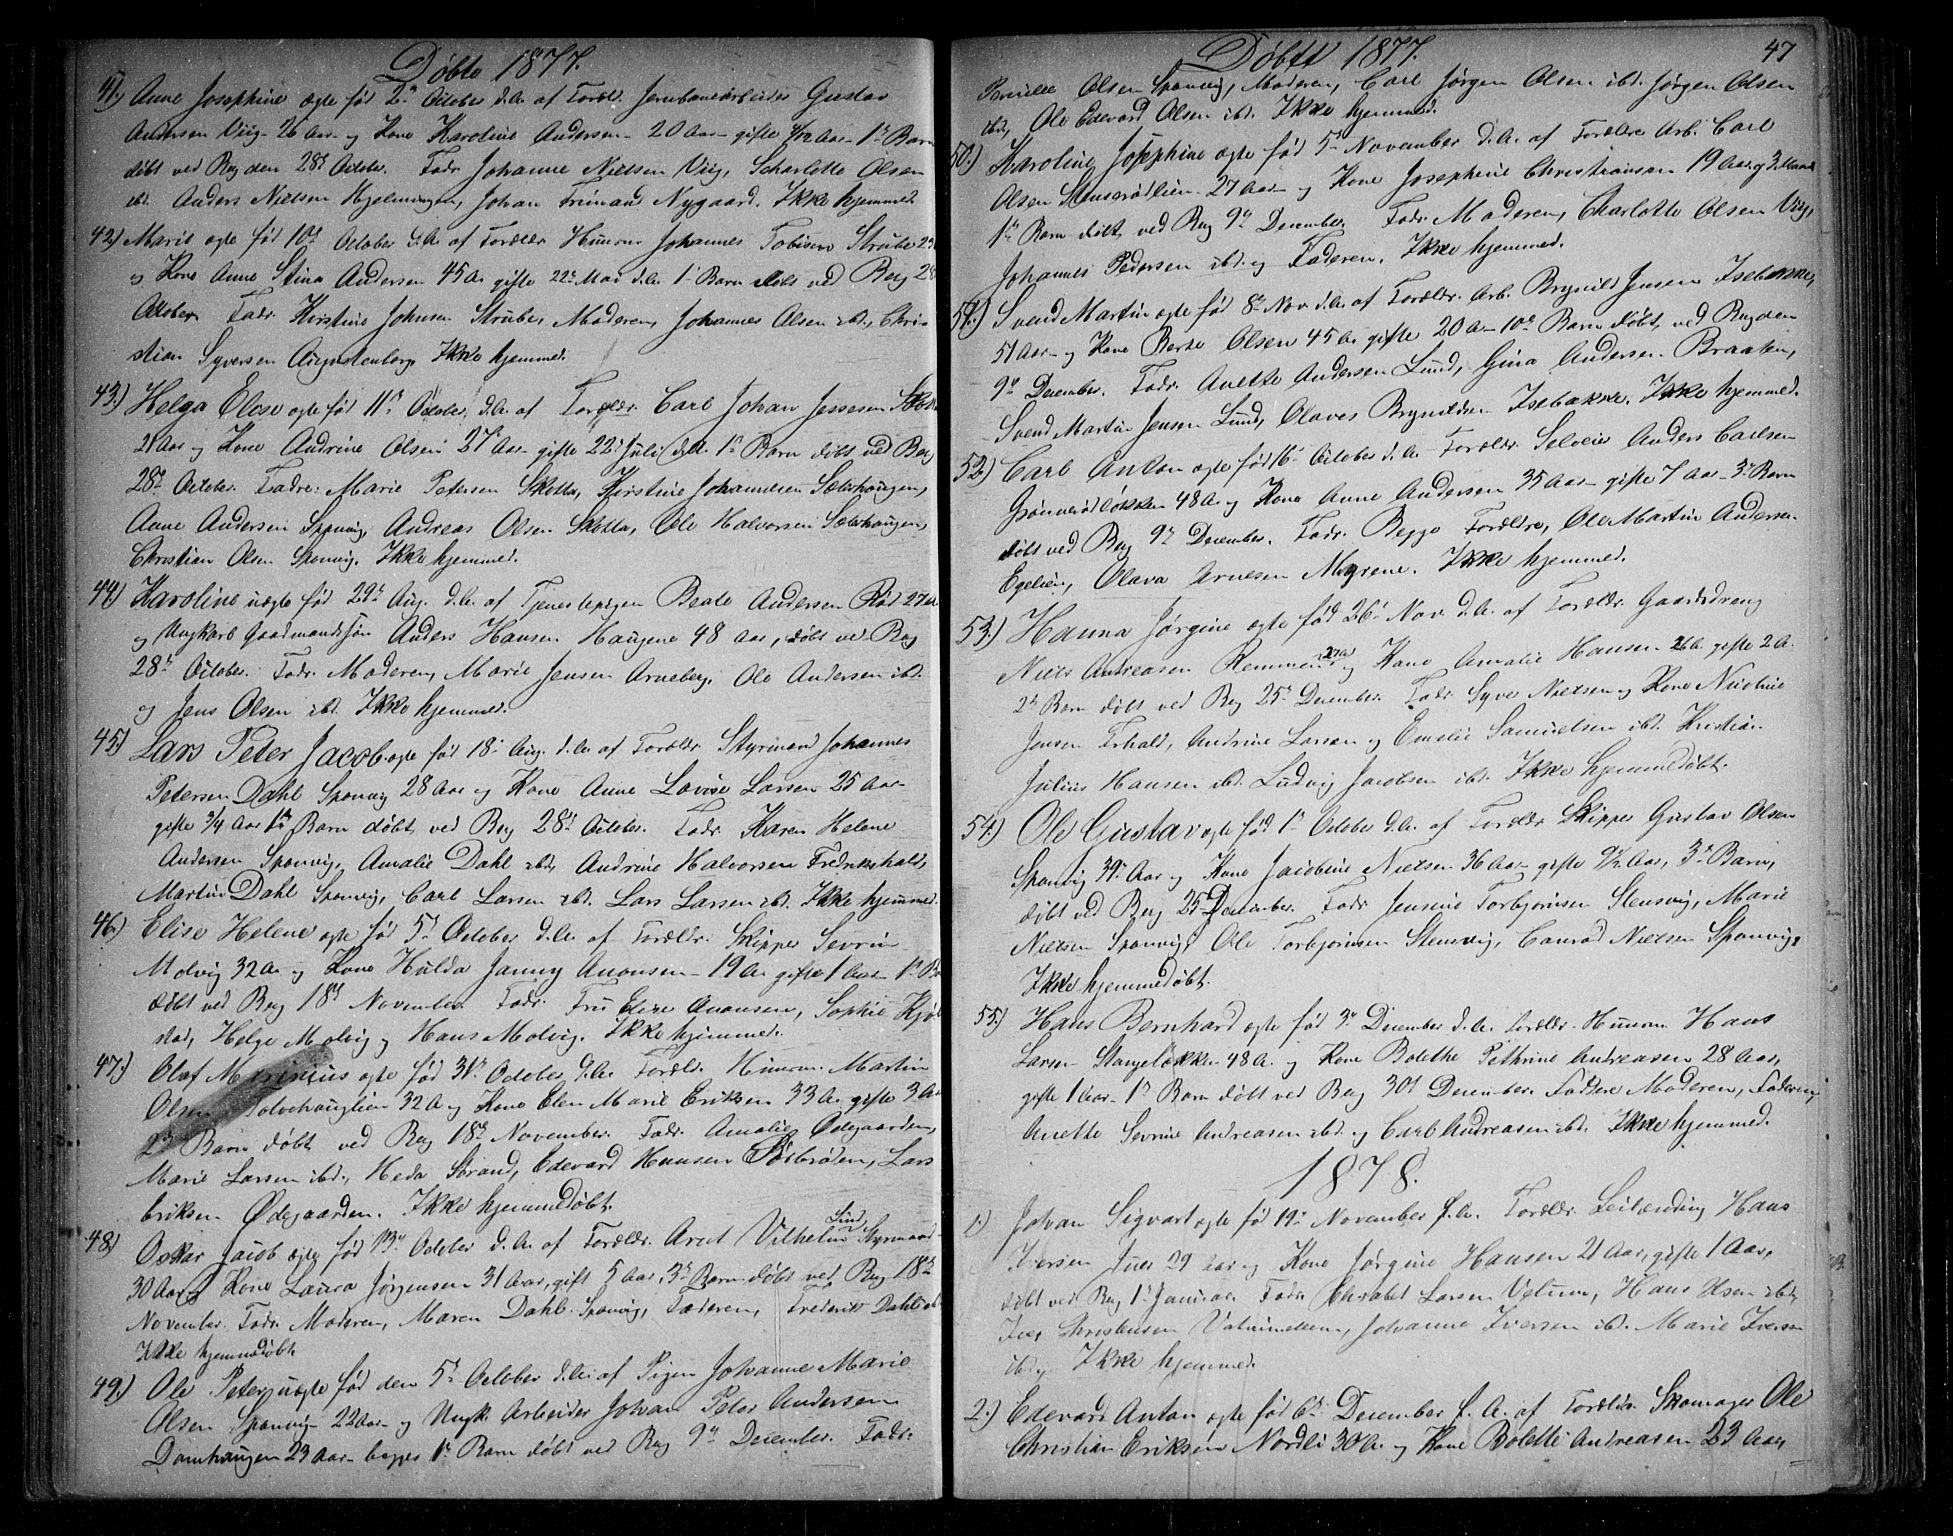 Døbte 1877.
41.) Anne Josephine ægte fød 2n October d.A. af Foræld. Jernbanearbeider Gustav
Andersen Viig 26 Aar og Kone Karoline Andersen 20 Aar gifte 4/12 Aar 1st Barn
døbt ved Berg den 28d October. Fadr Johanne Nielsen Viig, Scharlotte Olsen
ibd. Anders Nielsen Hjelmungen, Johan Nygaard. Ikke hjemmed.
42) Marie ægte fød 10d October d.A. af Forældr Huusm Johannes Tobiesen Strube
og Kone Anne Stina Andersen 45 A. gifte 22d Mai d.A. 1 Barn døbt ved Berg 28
Oktober Fadr. Kirstine Johnsen Strube, Moderen, Johannes Olsen ibd., Chri-
stian Syversen Augustenborg. Ikke hjemmed.
43.) Helga Elise ægte fød 11t October d.A. af Forældr. Carl Johan Jessesen Skotta
21 Aar og Kone Andrine Olsen 27 Aar gifte 22d Juli d.A. 1st Barn døbt ved Berg
28d October. Fadre: Marie Petersen Skotta, Kirstine Johannesen Sæterhaugen,
Anne Andersen Sponvig, Andreas Olsen Skotta, Ole Halvorsen Sæterhaugen,
Christian Olsen Sponvig. Ikke hjemmed.
44) Karoline uægte fød 29d Aug. d.A. af Tjenestepigen Beate Andersen Rød 27 Aar
og Ungkarl Gaardmandssøn Anders Hansen Haugene 48 Aar, døbt ved Berg
28d October. Fadr. Moderen, Marie Jensen Arneberg, Ole Andersen ibd.
og Jens Olsen ibd. Ikke hjemmed.
45) Lars Peter Jacob ægte fød 18d Aug. d.A. af Forældr Styrmand Johannes
Petersen Dahl Sponvig 28 Aar og Kone Anne Lovise Larsen 25 Aar
gifte 3/4 Aar 1st Barn døbt ved Berg 28d October. Fadr Karen Helene
Andersen Sponvig, Amalie Dahl ibd, Andrine Halvorsen Fredrikshald,
Martin Dahl Sponvig, Carl Larsen ibd. Lars Larsen ibd. Ikke hjemmed.
46.) Elise Helene ægte fød 5d October d.A. af Forældr. Skipper Sevrin
Molvig 32 A. og Kone Hulda Janny Anonsen 19 A. gifte 1 Aar 1st Ba
døbt ved Berg 18d November Fadr. Fru Elise Anonsen, Sophie
stad, Helge Molvig og Hans Molvig. Ikke hjemmed.
47.) Olaf Marinius ægte fød 31t October d.A. Forældr. Huusm. Martin
Olsen 32 A og Kone Elen Marie Eriksen 33 A. gifte 3 Aar
2d Barn døbt ved Berg 18d November. Fadr. Amalie Ødegaarden,
Marie Larsen ibd., Heda Strand, Edevard Hansen, Lars
Eriksen Ødegaarden. Ikke hjemmedøbt.
48) Oskar Jacob ægte fød 13d October d.A. af Forældr. Arnt Vilhelm Lind Styrmand
30 Aar og Kone Laura Jørgensen 31 Aar, gift 5 Aar, 3d Barn døbt ved Berg 18d
November. Fadr. Moderen, Maren Dahl Sponvig, Faderen, Frederik Dahl ibd
Ikke hjemmedøbt.
49.) Ole Peter, uægte fød den 5d October d.A. af Pigen Johanne Marie
Olsen Sponvig 22 Aar og Ungk. Arbeider Johan Peter Andersen
Damhaugen 23 Aar begges 1st Barn døbt ved Berg 9d December. Fadr.
Døbte 1877. 47
Pernille Olsen Sponvig, Moderen, Carl Jørgen Olsen ibd. Jørgen Olsen
ibd, Ole Edevard Olsen ibd. Ikke hjemmed.
50.) Karoline Josephine ægte fød 5d November d.A. af Forældre Arb. Carl
Olsen Stenserødlien 27 Aar og Kone Josephine Christiansen 19 Aar og 3 Maan
1st Barn døbt ved Berg 9d December. Fadr. Moderen, Charlotte Olsen Viig,
Johannes Pedersen ibd. og Faderen. Ikke hjemmed.
51.) Svend Martin ægte fød 8d Nov d.A. af Forældr. Arb. Brynild Jensen Isebakke,
51 Aar og Kone Berte Olsen 45 A. gifte 20 A. 10d Barn døbt ved Berg den
9d December. Fadr. Anette Andersen Lund, Gina Andersen Braaten,
Svend Martin Jensen Lund, Olaves Brynildsen Isebakke. Ikke hjemmed.
52.) Carl Anton ægte fød 16d October d.A. Forældr. Selveier Anders Carlsen
Grønnerødløkken 48 A. og Kone Anne Andersen 35 Aar gifte 7 Aar 3d Barn
døbt ved Berg 9d December. Fadr. Begge Forældre, Ole Martin Andersen
Egelien, Olava Arnesen Myrene. Ikke hjemmed.
53.) Hanna Jørgine ægte fød 26d Nov. d.A. af Forældr. Gaardsdreng
Niels Andreasen Remmen 27 A og Kone Amalie Hansen 26 A. gifte 2 A.
2d Barn døbt ved Berg 25d December. Fadr. Syver Nielsen og Kone Nicoline
Jensen, Andrine Larsen og Emelie Samuelsen ibd. Kristian
Julius Hansen ibd. Ludvig Jacobsen ibd. Ikke hjemmedøbt.
54.) Ole Gustav ægte fød 1st October d.A. af Forældr Skipper Gustav Olsen
Sponvig 39 Aar og Kone Jacobine Nielsen 36 Aar gifte 9½ Aar, 3d Barn,
døbt ved Berg 25d December. Fadr Jensine Torbjørnsen Stensvig, Marie
Nielsen Sponvig, Ole Torbjørnsen Stensvig, Conrad Nielsen Sponvig.
Ikke hjemmedøbt.
55.) Hans Bernhard ægte fød 3d December d.A. Forældr. Huusm Hans
Larsen Stangeløkken 48 A. og Kone Bolethe Pethrine Andreasen 28 Aar,
gifte 1 Aar 1st Barn døbt ved Berg 30t December. Faddere Moderen, Faderen,
Anette Sevrine Andreasen ibd. og Carl Andreasen ibd. Ikke hjemmed.
1878.
1.) Johan Sigvart ægte fød 19d November f.A. Forældr Leilænding Hans
Iversen 29 Aar og Kone Jørgine Hansen 21 Aar, gifte 1 Aar,
døbt ved Berg 1st Januar. Fadr. Larsen, Hans ibd,
Iver Christensen, Johanne Iversen ibd. Marie Iversen
ibd. Ikke hjemmed.
2.) Edevard Anton ægte fød 6d December f.A. af Forældr. Skomager Ole
Christian Eriksen Nordli 30 A. og Kone Bolette Andreasen 23 Aar,